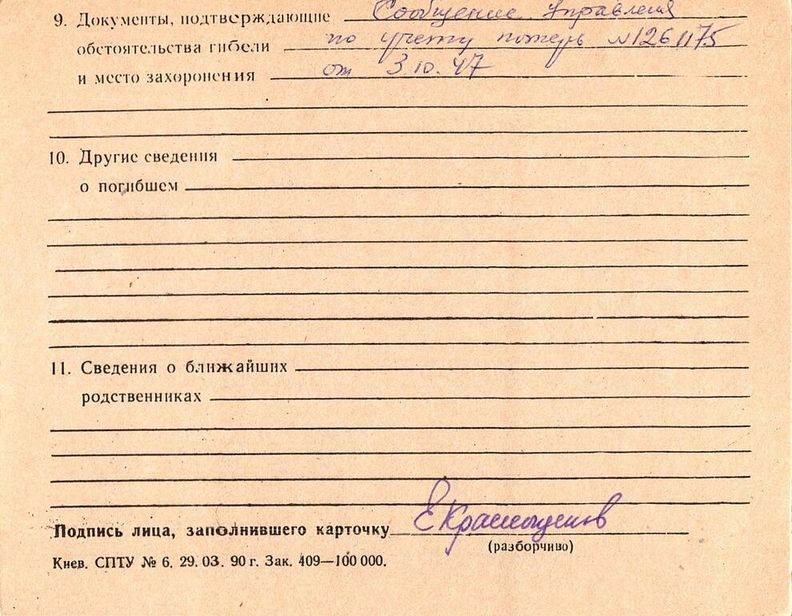 9. Документы, подтверждающие Сообщение Управления
обстоятельства гибели по учету потерь №126175
и место захоронения от 3.10.47
10. Другие сведения
о погибшем
11. Сведения о ближайших
родственниках
Подпись лица, заполнившего карточку
(разборчиво)
Киев. СПТУ № 6. 29. 03. 90 г. Зак. 409—100 000.